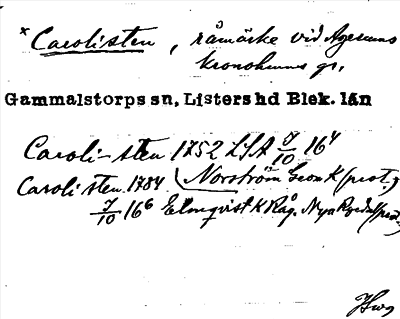 * Carolisten, råmärke vid Agerums
kronohemms gr.
Gammalstorps sn, Listers hd Blek. län
Caroli-sten 1752 LSA 7/10 16⁴
Caroli sten 1784 Norström Leon K (prot.)
7/10 16⁶ Elmqvist K Råg. Nya (prot.)